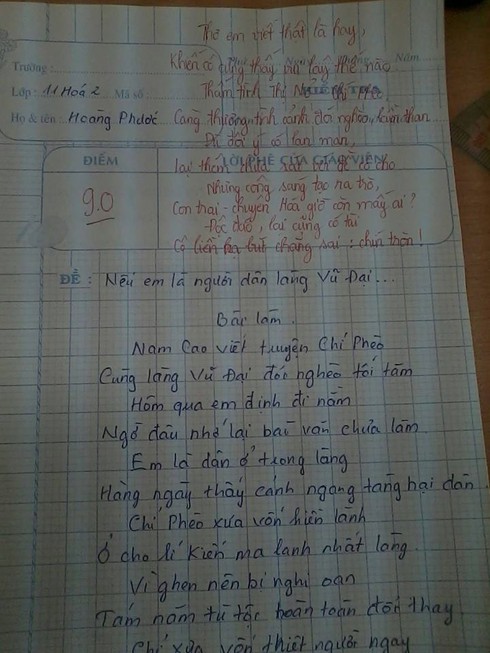 Thơ em viết thật là hay,
Khiến cô cũng thấy vui lây thế nào
Năm
Trường:
Thấm tình Thị Nở Chí Phèo,
Lớp: 11 Hoá 2 Mã số:
Họ & tên: Hoàng Phước
Càng thương tình cảnh đói nghèo, lầm than
Dù đôi ý có lan man,
ĐIỂM
LỜI PHÊ CỦA GIÁO VIÊN
lại thêm chữ xấu
Nhưng công sáng tạo ra trò,
9.0
Con trai - chuyên Hóa giờ còn mấy ai?
Độc đáo, lại cũng có tài
Cô liền hạ bút chẳng sai: chín tròn!
ĐỀ: Nếu em là người dân làng Vũ Đại...
Bài làm.
Nam Cao viết truyện Chí Phèo
Cùng làng Vũ Đại đói nghèo tối tăm
Hôm qua em định đi nằm
Ngờ đâu nhớ lại bài văn chưa làm
Em là dân ở trong làng
Hàng ngày thấy cảnh ngang tàng hại dân.
Chí Phèo xưa vốn hiền lành
Ở cho lí Kiến ma lanh nhất làng.
Vì ghen nên bị nghi oan
Tám năm tù tộc hoàn toàn đổi thay
Chí xưa vốn thiệt người ngay